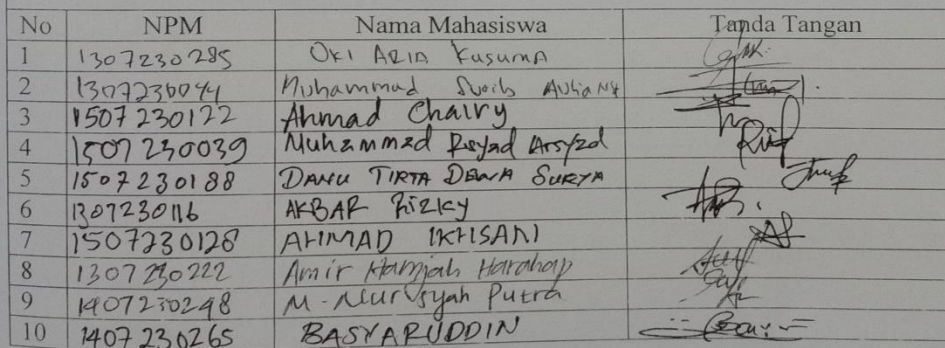 No NPM Nama Mahasiswa Tanda Tangan
1 1307230285 OKI ARIA Kusuma
2 1307230044 Muhammad
3 1507230122 Ahmad Chairy
4 1507230039 Muhammad Rsyad Arsyad
5 1507230188 DANU TIRTA DEWA SURYA
6 1307230116 AKBAR Rizky
7 1507230128 AHMAD IKHSANI
8 1307230222 Amir Hamjah Harahap
9 1407230248 M. Putra
10 1407230265 BASYARUDDIN